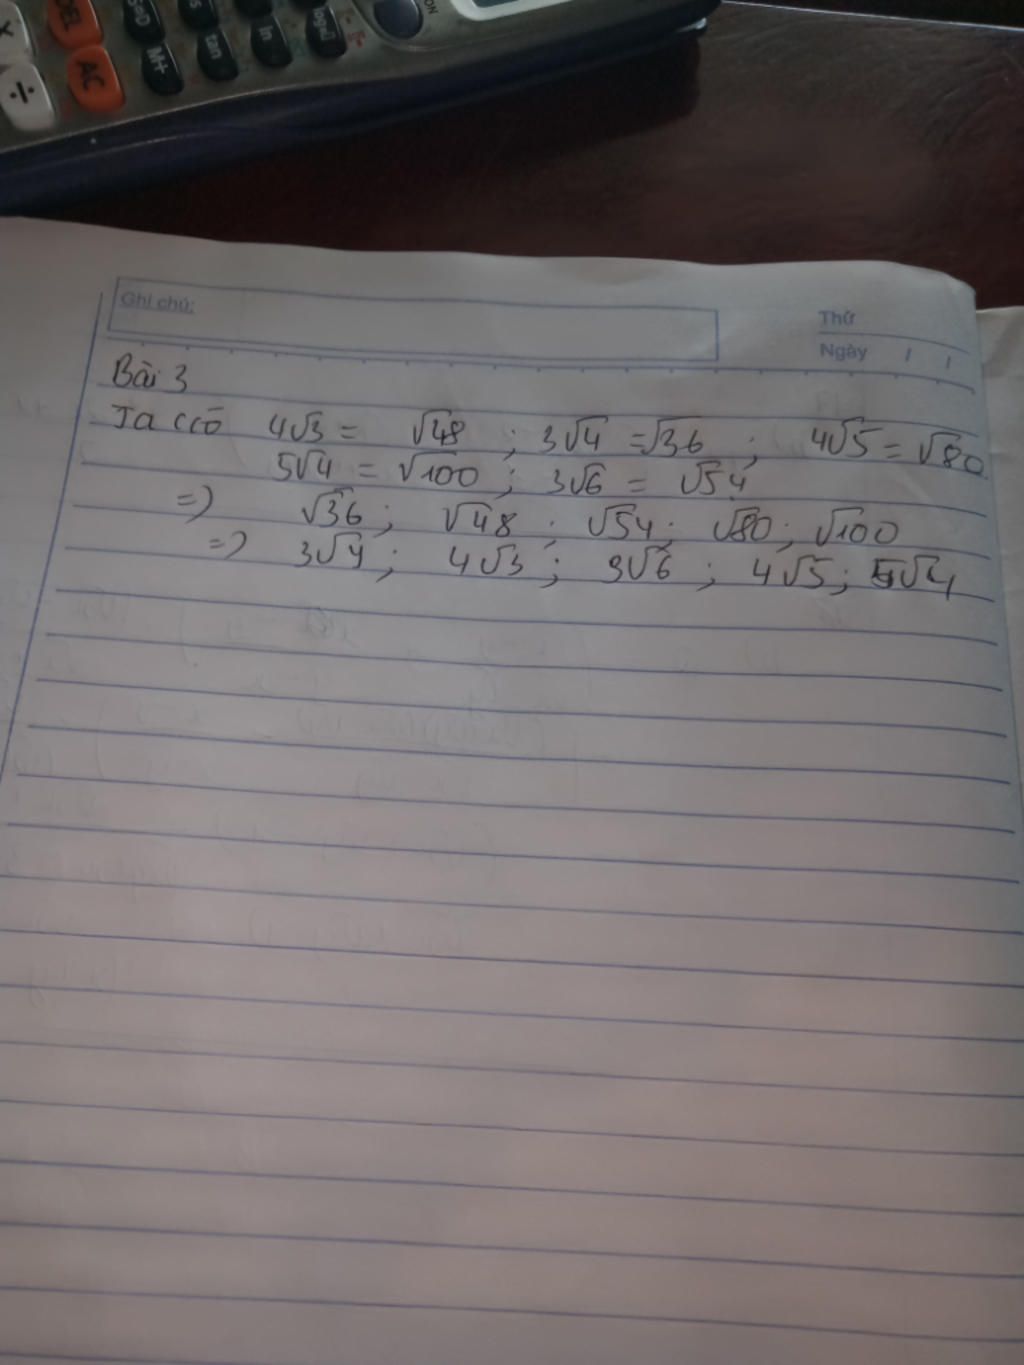 DEL
AC
S⇔D
M+
tan
ln
ON
÷
Ghi chú:
Thứ
Ngày / /
Bài 3
Ta ccó 4√3 = √48 ; 3√4 = √36 ; 4√5 = √80
5√4 = √100 ; 3√6 = √54
=) √36 ; √48 ; √54 ; √80 ; √100
=) 3√4 ; 4√3 ; 3√6 ; 4√5 ; 5√4